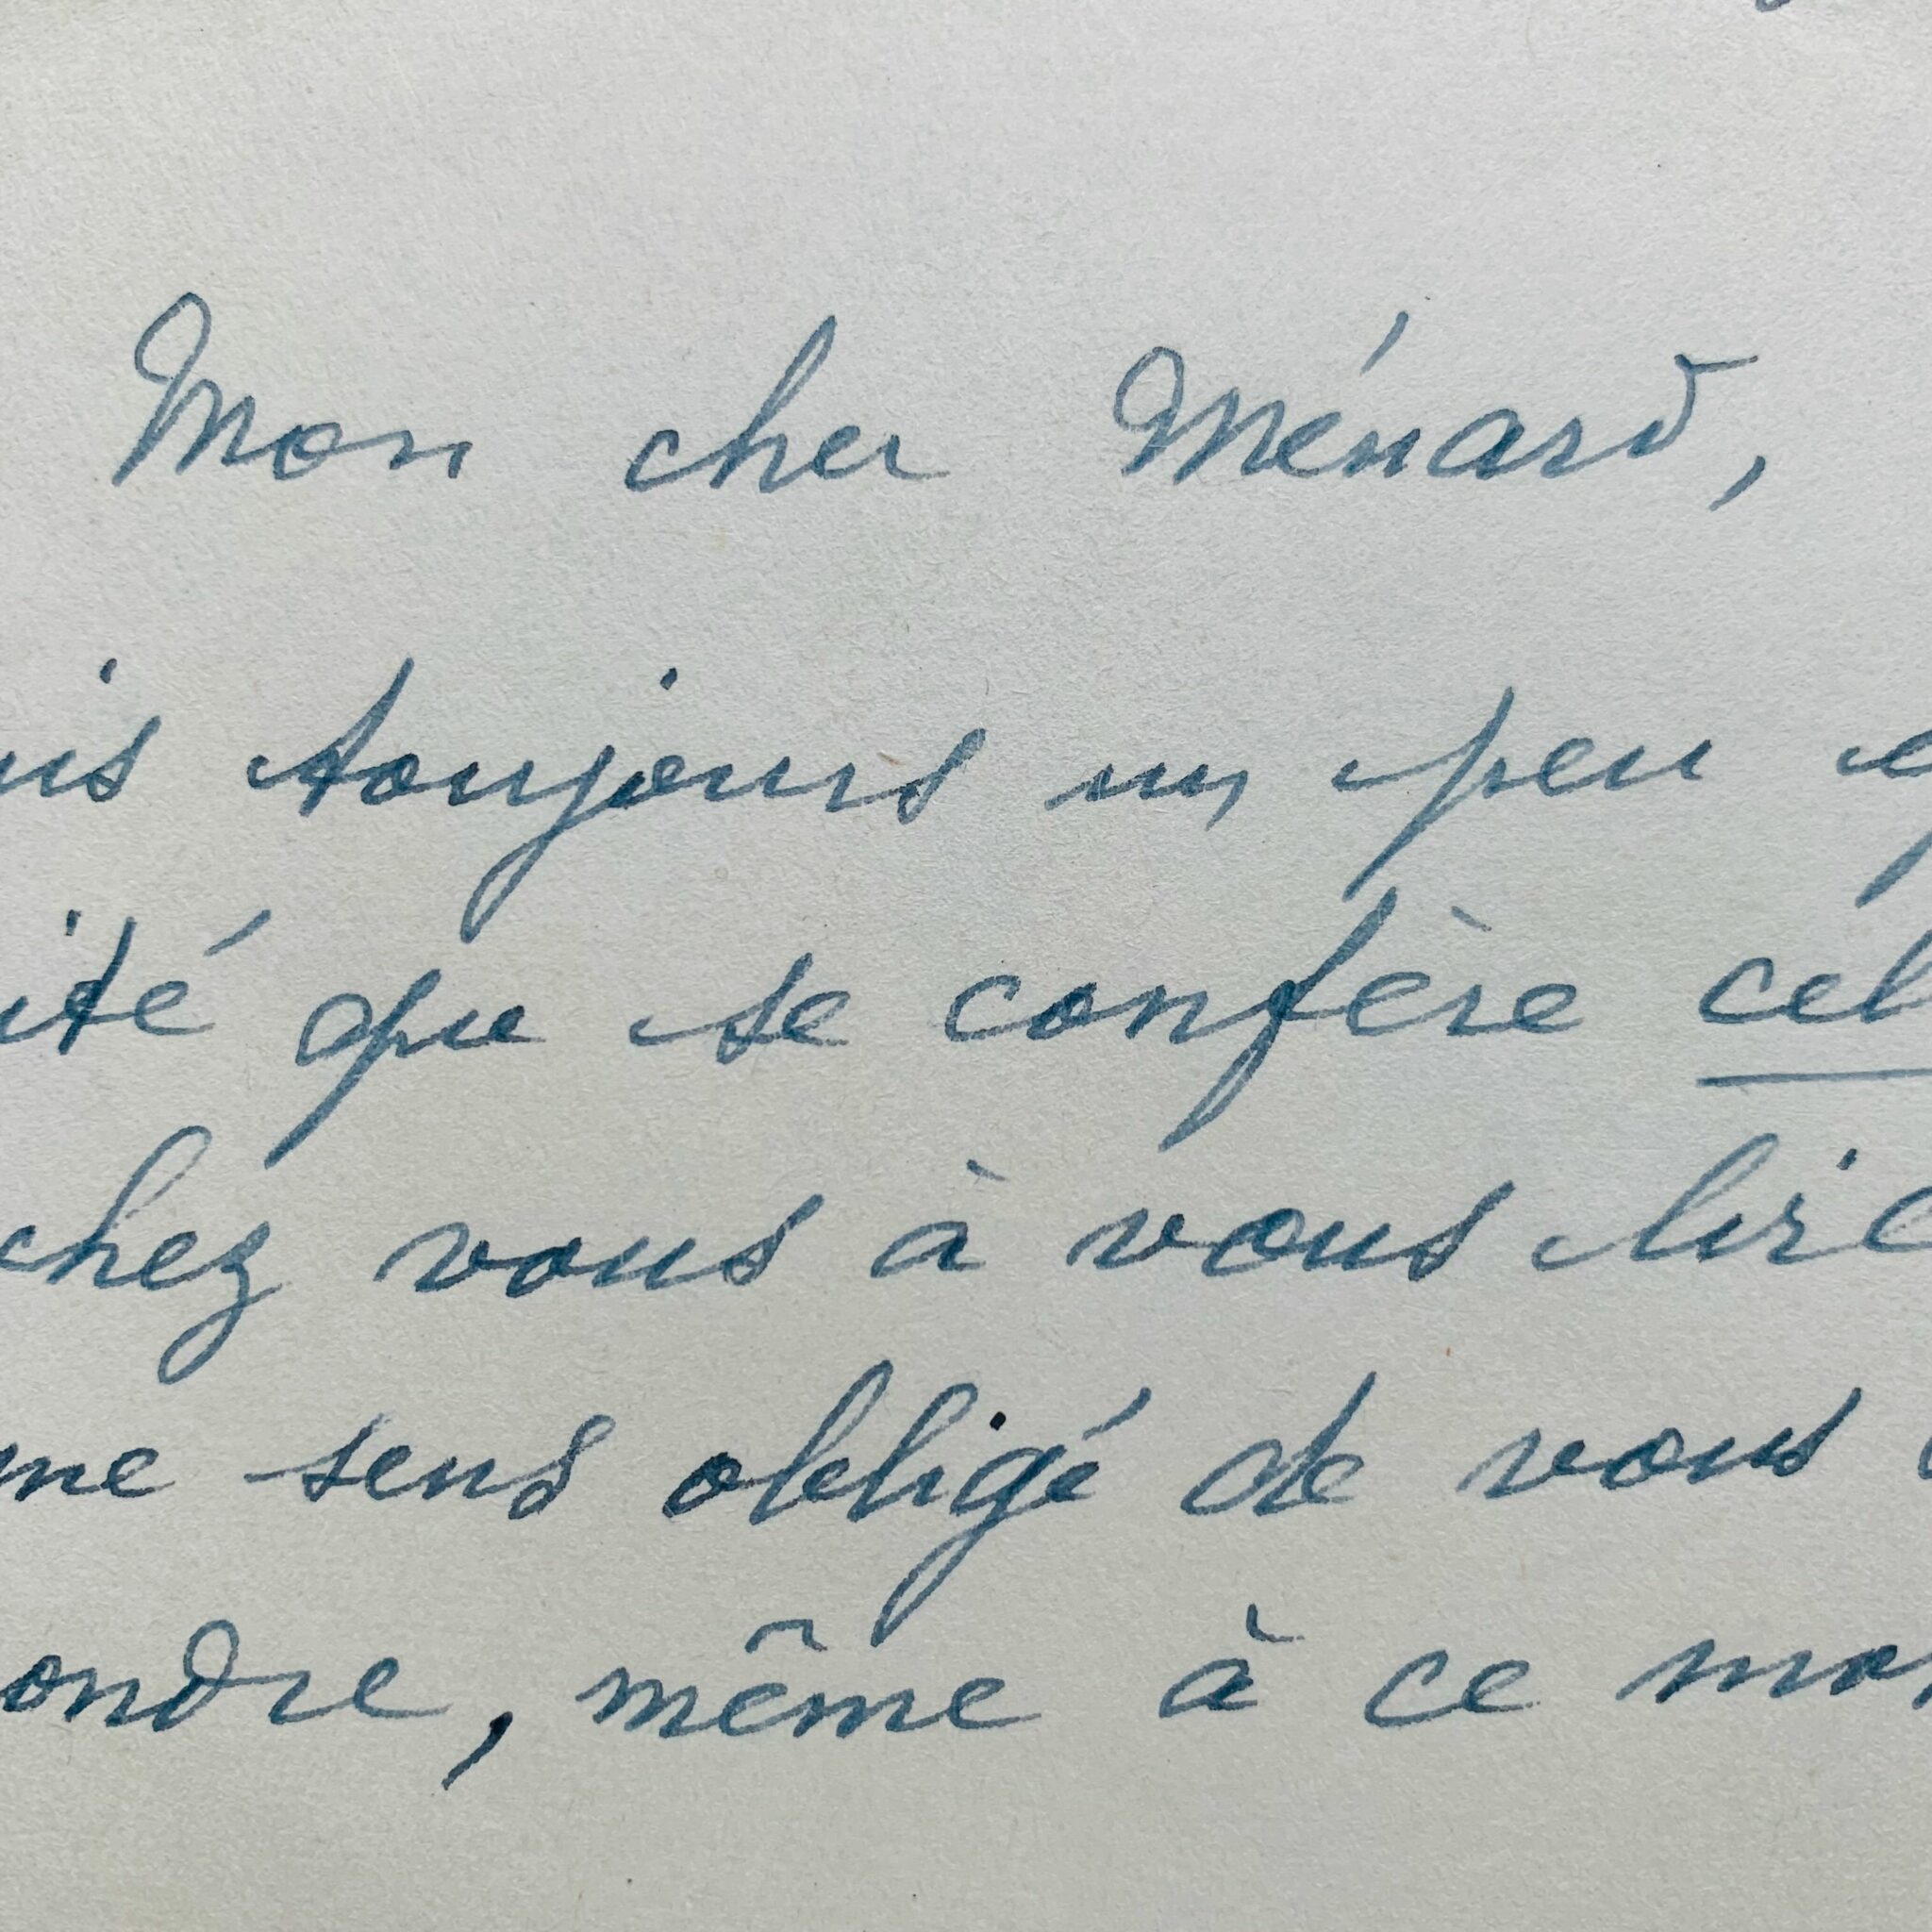 Mon cher Ménard,
uis toujours un peu
ité que se confère cel
chez vous à vous lire
me sens obligé de vous
ondre, même à ce mo